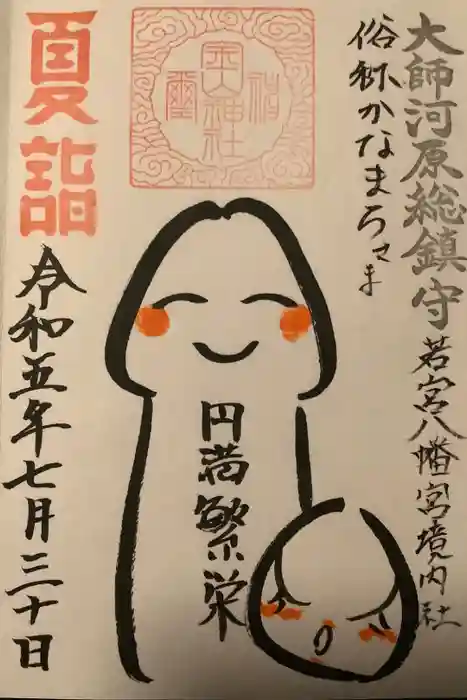 大師河原総鎮守 若宮八幡宮境内社
俗称かなまらさま
金山神社
円満繁栄
夏詣
令和五年七月三十日